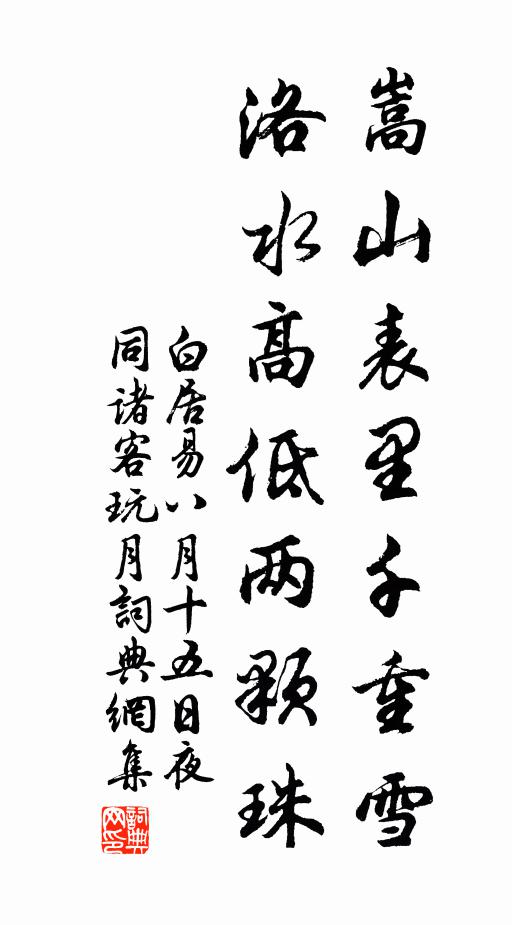 嵩山表里千重雪
洛水高低两颗珠
白居易八月十五日夜
同诸客玩月詞典網集
詞典
网印